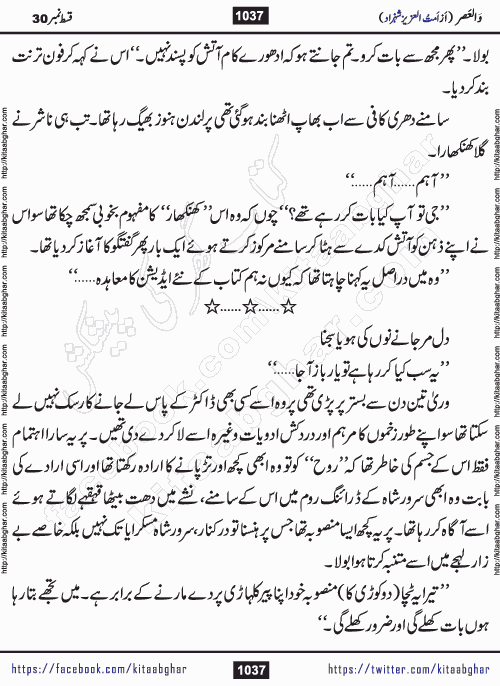 والعصر (از امت العزیز شہزاد)
1037
قسط نمبر 30
بولا۔’’پھر مجھ سے بات کرو۔ تم جانتے ہو کہ ادھورے کام آتش کو پسند نہیں۔‘‘ اس نے کہہ کر فون ترنت
بند کر دیا۔
سامنے دھری کافی سے اب بھاپ اٹھنا بند ہو گئی تھی پر لندن ہنوز بھیگ رہا تھا۔ تب ہی ناشر نے
گلا کھنکھارا۔
’’آہم......آہم......‘‘
’’جی تو آپ کیا بات کر رہے تھے؟‘‘ چوں کہ وہ اس ’’کھنکھار‘‘ کا مفہوم بخوبی سمجھ چکا تھا سو اس
نے اپنے ذہن کو آتش کدے سے ہٹا کر سامنے مرکوز کرتے ہوئے ایک بار پھر گفتگو کا آغاز کر دیا تھا۔
’’وہ میں دراصل یہ کہنا چاہتا تھا کہ کیوں نہ ہم کتاب کے نئے ایڈیشن کا معاہدہ......‘‘
☆......☆......☆
دل مر جانے نوں کی ہویا سجنا
’’یہ سب کیا کر رہا ہے تو یار باز آجا......‘‘
وریٰ تین دن سے بستر پر پڑی تھی پر وہ اسے کسی بھی ڈاکٹر کے پاس لے جانے کا رسک نہیں لے
سکتا تھا سو اپنے طور زخموں کا مرہم اور درد کش ادویات وغیرہ اسے لا کر دے دی تھیں۔ پر یہ سارا اہتمام
فقط اس کے جسم کی خاطر تھا کہ ’’روح‘‘ کو تو وہ ابھی کچھ اور تڑپانے کا ارادہ رکھتا تھا اور اسی ارادے کی
بابت وہ ابھی سرور شاہ کے ڈرائنگ روم میں اس کے سامنے، نشے میں دھت بیٹھا قہقہے لگاتے ہوئے
اسے آگاہ کر رہا تھا۔ پر یہ کچھ ایسا منصوبہ تھا جس پر ہنسنا تو درکنار، سرور شاہ مسکرایا تک نہیں بلکہ خاصے بے
زار لہجے میں اسے متنبہ کرتا ہوا بولا۔
’’تیرا یہ ٹچا (دو کوڑی کا) منصوبہ خود اپنا پیر کلہاڑی پر دے مارنے کے برابر ہے۔ میں تجھے بتا رہا
ہوں بات کھلے گی اور ضرور کھلے گی۔‘‘
https://facebook.com/kitaabghar
1037
https://twitter.com/kitaabghar
http://kitaabghar.com